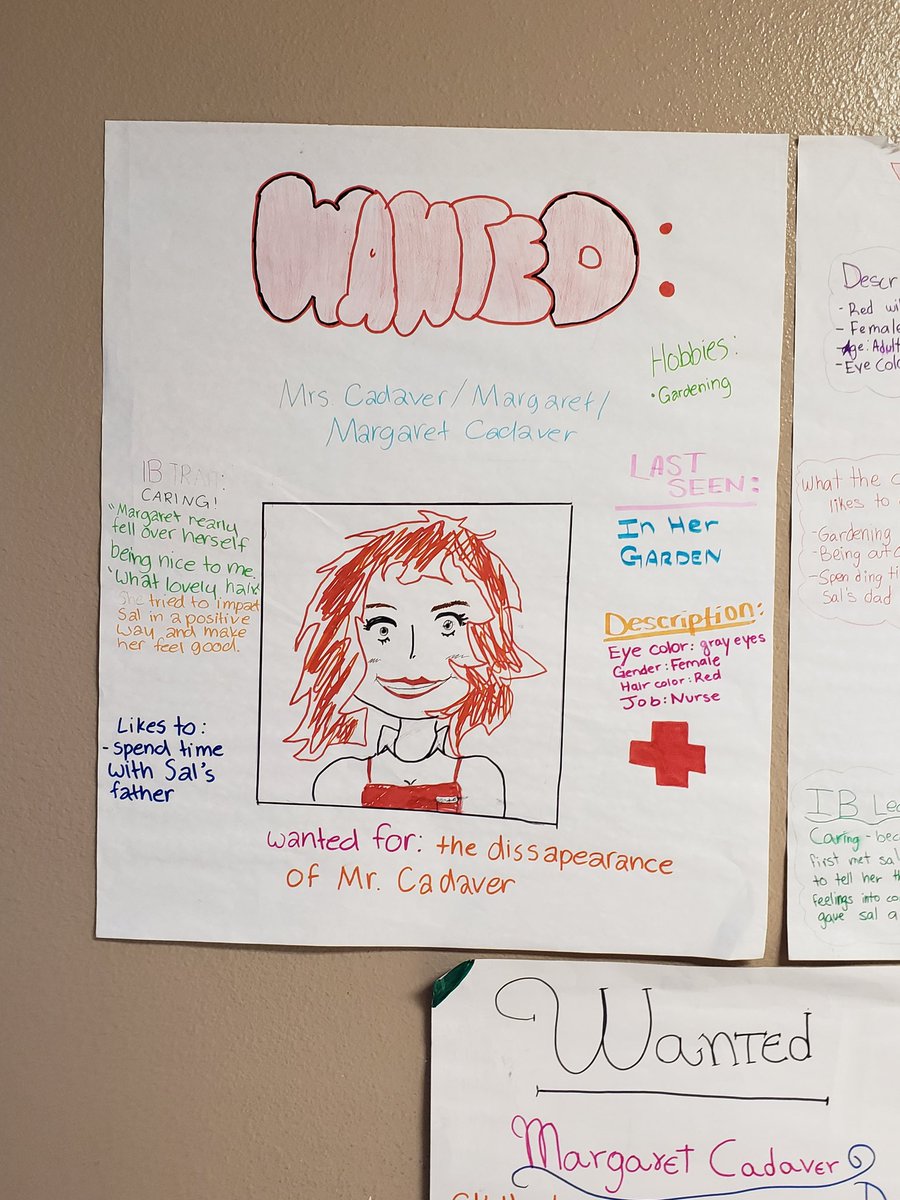 WANTED:
Mrs. Cadaver/Margaret/
Margaret Cadaver
Hobbies:
•Gardening
IB TRAIT:
CARING!
"Margaret nearly
fell over herself
being nice to me.
'What lovely hair
She tried to impact
Sal in a positive
way, and make
her feel good.
Likes to:
-spend time
with Sal's
father
LAST
SEEN:
In Her
GARDEN
Description:
Eye color: gray eyes
Gender: Female
Hair color: Red
Job: Nurse
wanted for: the dissapearance
of Mr. Cadaver
Descr
- Red wi
- Female
- Age: Adult
- Eye Colo
What the c
likes to
-Gardening
-Being out
-Spending ti
Sal's dad
IB Lea
Caring - bec
first met sal
to tell her th
feelings into co
gave sal a
Wanted
Margaret Cadaver